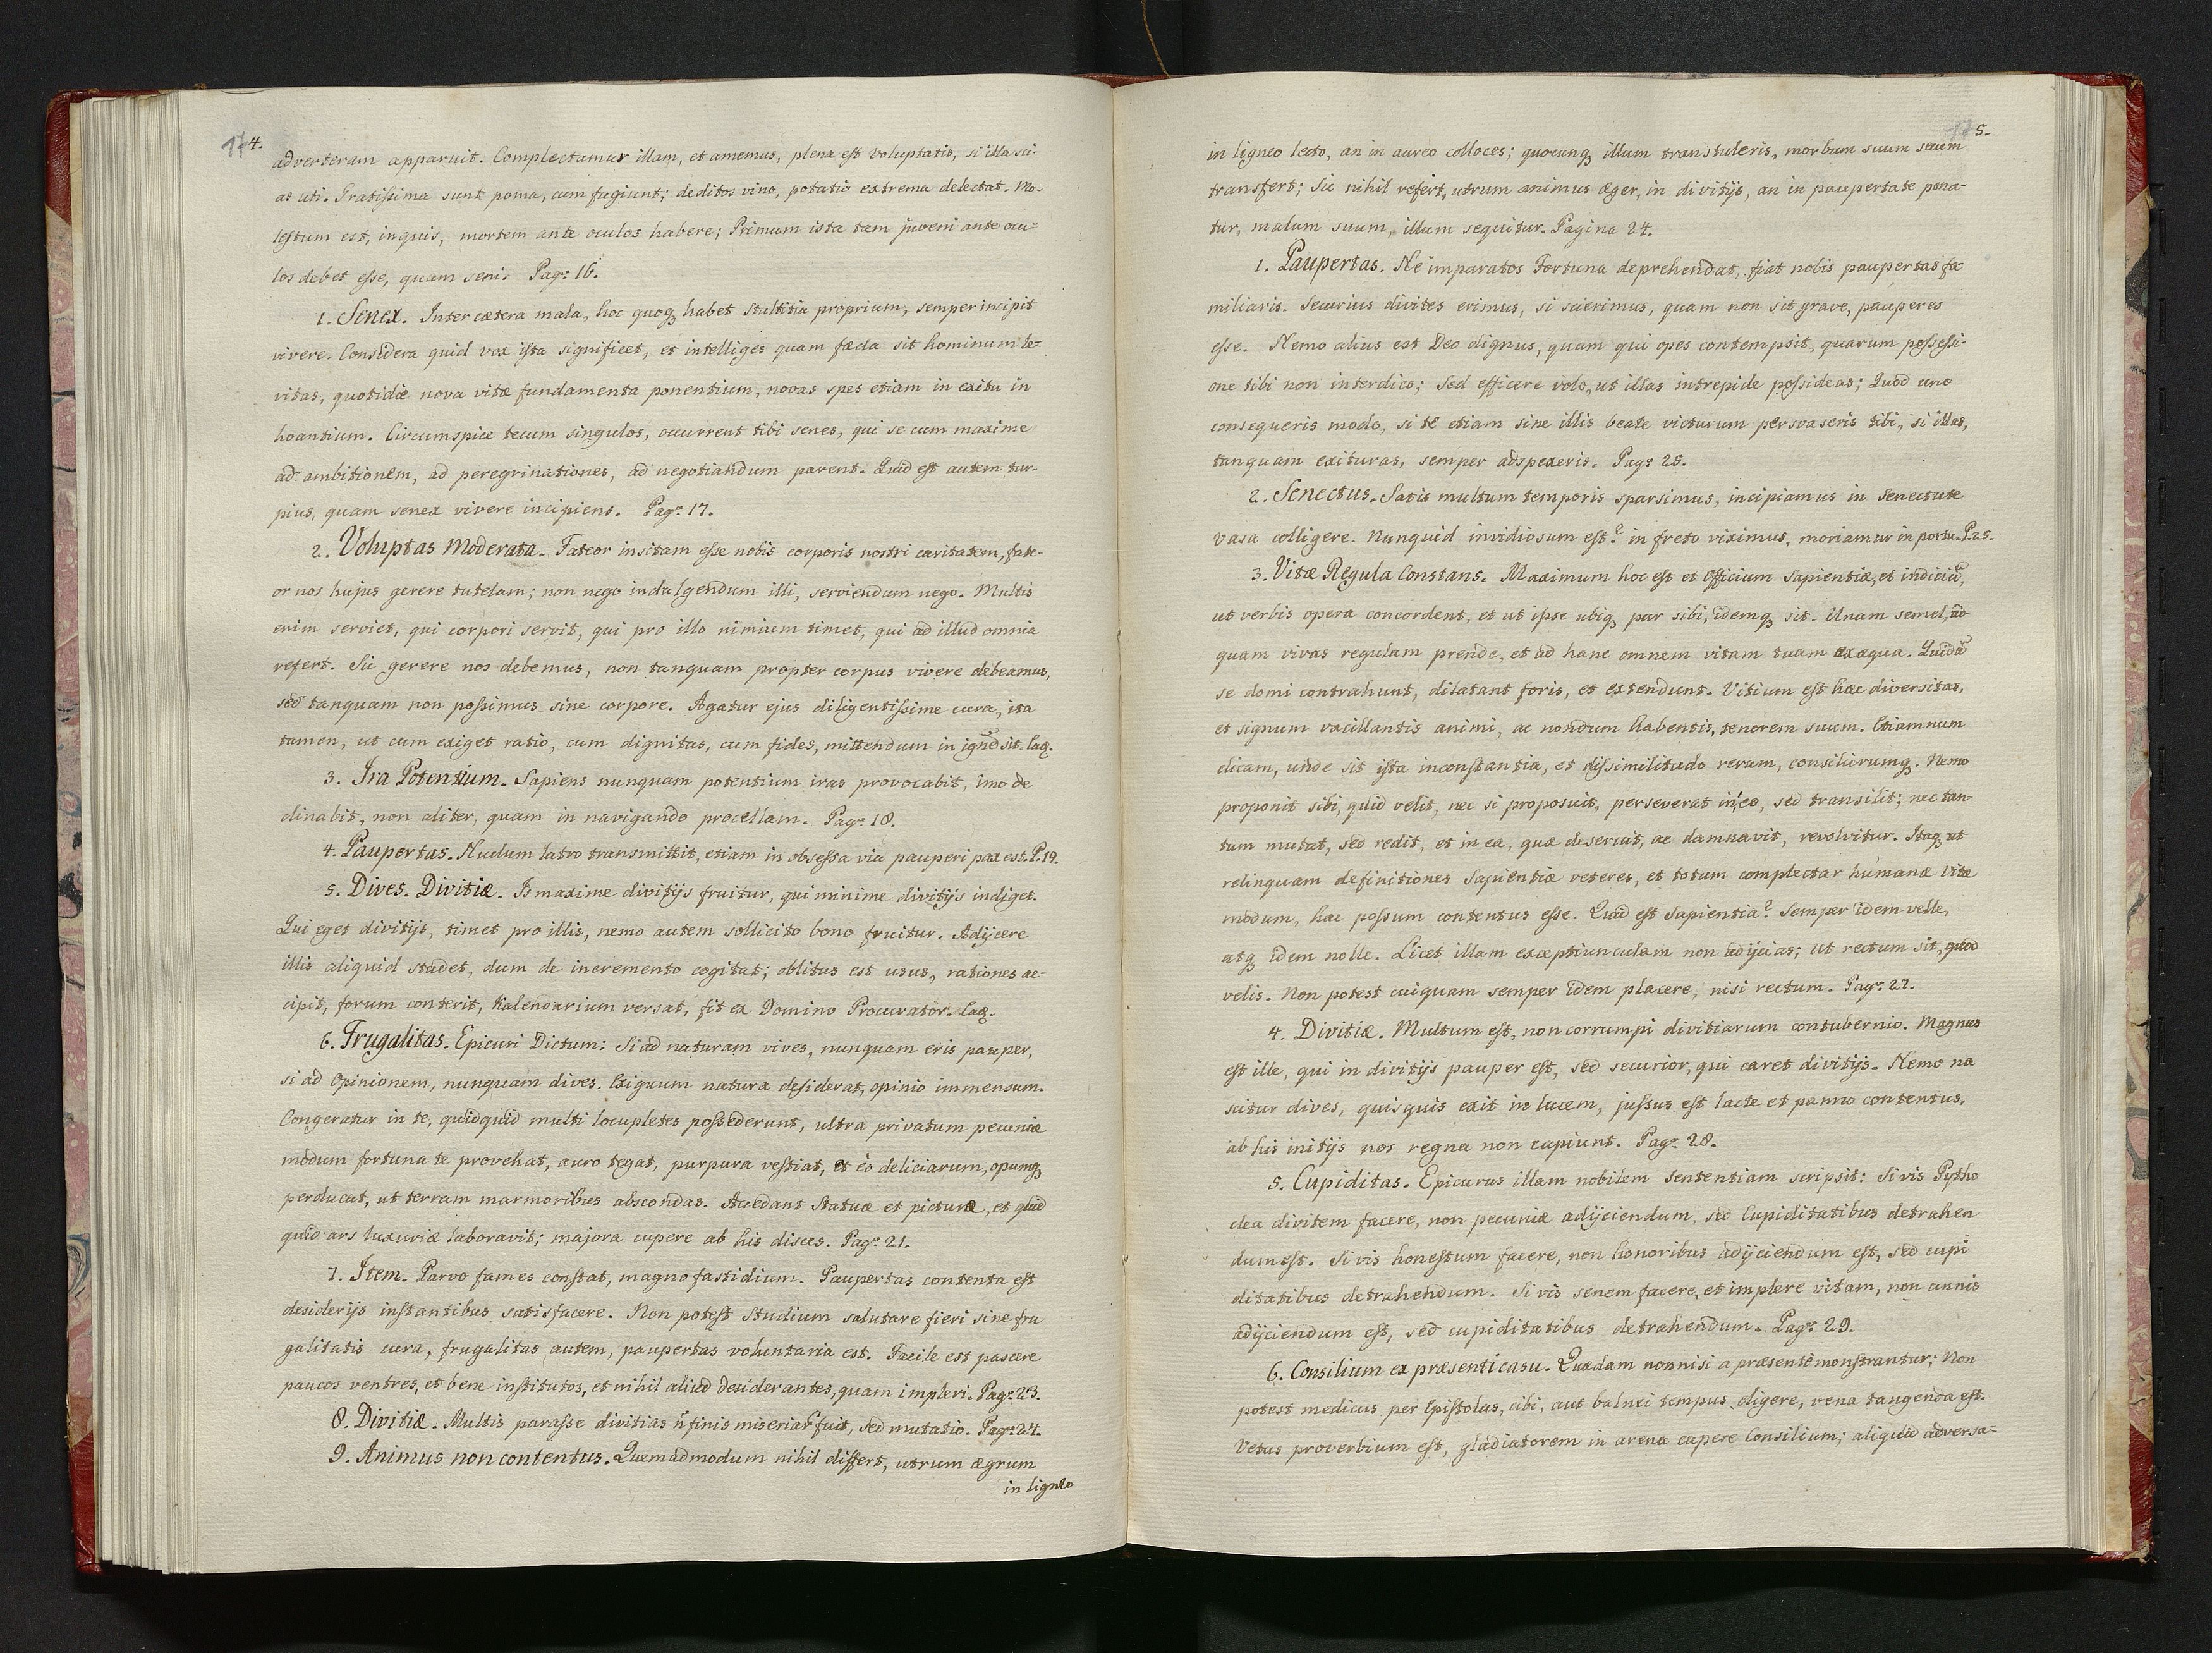 174.
adverteram apparuit. Complectamur illam, et amemus, plena est voluptatis, si illa sci-
as uti. Gratissima sunt poma, cum fugiunt; deditos vino, potatio extrema delectat. Mo-
lestum est, inquis, mortem ante oculos habere; Primum ista tam juveni ante ocu-
los debet esse, quam seni. Pag: 16.
1. Senex. Inter cætera mala, hoc quoq3 habet Stultitia proprium, semper incipit
vivere. Considera quid vox ista significet, et intelliges quam fæda sit hominum le-
vitas, quotidie nova vitæ fundamenta ponentium, novas spes etiam in exitu in
hoantium. Circumspice tecum singulos, occurrent tibi senes, qui se cum maxime
ad ambitionem, ad peregrinationes, ad negotiandum parent. Quid est autem tur-
pius, quam senex vivere incipiens. Pag: 17.
2. Voluptas Moderata. Fateor insitam esse nobis corporis nostri caritatem, fate-
or nos hujus gerere tutelam; non nego indulgendum illi, serviendum nego. Multis
enim serviet, qui corpori servit, qui pro illo nimium timet, qui ad illud omnia
refert. Sic gerere nos debemus, non tanquam propter corpus vivere debeamus,
sed tanquam non possimus sine corpore. Agatur ejus diligentissime cura, ita
tamen, ut cum exiget ratio, cum dignitas, cum fides, mittendum in igne͂ sit. Eaq.
3. Ira Potentium. Sapiens nunquam potentium iras provocabit, imo de
clinabit, non aliter, quam in navigando procellam. Pag: 18.
4. Paupertas. Nudum latro transmittit, etiam in obsessa via pauperi pax est. P. 19.
5. Dives. Divitiæ. Is maxime divitijs fruitur, qui minime divitijs indiget.
Qui eget divitijs, timet pro illis, nemo autem sollicito bono fruitur. Adijcere
illis aliquid studet, dum de incremento cogitat; oblitus est usus, rationes ac-
cipit, forum conterit, Kalendarium versat, fit ex Domino Procurator. Eaq.
6. Frugalitas. Epicuri Dictum: Si ad naturam vives, nunquam eris pauper,
si ad Opinionem, nunquam dives. Exiguum natura desiderat, opinio immensum.
Congeratur in te, quidquid multi locupletes possederunt, ultra privatum pecuniæ
modum fortuna te provehat, auro tegat, purpura vestiat, et eò deliciarum, opumq3
perducat, ut terram marmoribus abscondas. Accedant Statuæ et picturæ, et quid
quid ars luxuriæ laboravit; majora cupere ab his disces. Pag: 21.
7. Item. Parvo fames constat, magno fastidium. Paupertas contenta est
desiderijs instantibus satisfacere. Non potest studium salutare fieri sine fru
galitatis cura, frugalitas autem, paupertas voluntaria est. Facile est pascere
paucos ventres, et bene institutos, et nihil aliud desiderantes, quam impleri. Pag: 23.
8. Divitiæ. Multis parasse divitias n͂ finis miseriar͂ fuit, sed mutatio. Pag: 24.
9. Animus non contentus. Quemadmodum nihil differt, utrum ægrum
in ligneo
175.
in ligneo lecto, an in aureo colloces; quocunq3 illum transtuleris, morbum suum secum
transfert; Sic nihil refert, utrum animus æger, in divitijs, an in paupertate pona-
tur, malum suum, illum sequitur. Pagina 24.
1. Paupertas. Ne imparatos Fortuna deprehendat, fiat nobis paupertas fa
miliaris. Securius divites erimus, si scierimus, quam non sit grave, pauperes
esse. Nemo alius est Deo dignus, quam qui opes contempsit, quarum possessi-
one tibi non interdico; Sed efficere volo, ut illas intrepide possideas; Quod uno
consequeris modo, si te etiam sine illis beate victurum persvaseris tibi, si illas,
tanquam exituras, semper adspexeris. Pag: 25.
2. Senectus. Satis multum temporis sparsimus, incipiamus in Senectute
vasa colligere. Nunquid invidiosum est? in freto viximus, moriamur in portu. P. 25.
3. Vitæ Regula Constans. Maximum hoc est et officium Sapientiæ, et indiciu͂,
ut verbis opera concordent, et ut ipse ubiq3 par sibi, idemq3 sit. Unam semel, ad
quam vivas regulam prende, et ad hanc omnem vitam tuam exæqua. Quida͂
se domi contrahunt, dilatant foris, et extendunt. Vitium est hæc diversitas,
et signum vacillantis animi, ac nondum habentis, tenorem suum. Etiamnum
dicam, unde sit ista inconstantia, et dissimilitudo rerum, consiliorumq3. Nemo
proponit sibi, quid velit, nec si proposuit, perseverat in eo, sed transilit; nec tan
tum mutat, sed redit, et in ea, quæ deseruit, ac damnavit, revolvitur. Itaq3 ut
relinquam definitiones Sapientiæ veteres, et totum complectar humanæ Vitæ
modum, hac possum contentus esse. Quid est Sapientia? Semper idem velle,
atq3 idem nolle. Licet illam exceptiunculam non adijcias; ut rectum sit, quod
velis. Non potest cuiquam semper idem placere, nisi rectum. Pag: 27.
4. Divitiæ. Multum est, non corrumpi divitiarum contubernio. Magnus
est ille, qui in divitijs pauper est, sed securior, qui caret divitijs. Nemo na
scitur dives, quisquis exit in lucem, jussus est lacte et panno contentus,
ab his initijs nos regna non capiunt. Pag: 28.
5. Cupiditas. Epicurus illam nobilem Sententiam scripsit: Si vis Pytho
clea divitem facere, non pecuniæ adijciendum, sed Cupiditatibus detrahen
dum est. Si vis honestum facere, non honoribus adijciendum est, sed cupi
ditatibus detrahendum. Si vis senem facere, et implere vitam, non annis
adijciendum est, sed cupiditatibus detrahendum. Pag: 29.
6. Consilium ex præsenti casu. Quædam nonnisi a præsente monstrantur; Non
potest medicus per Epistolas, cibi, aut balnei tempus eligere, vena tangenda est.
Vetus proverbium est, gladiatorem in arena capere Consilium; aliquid adversa-